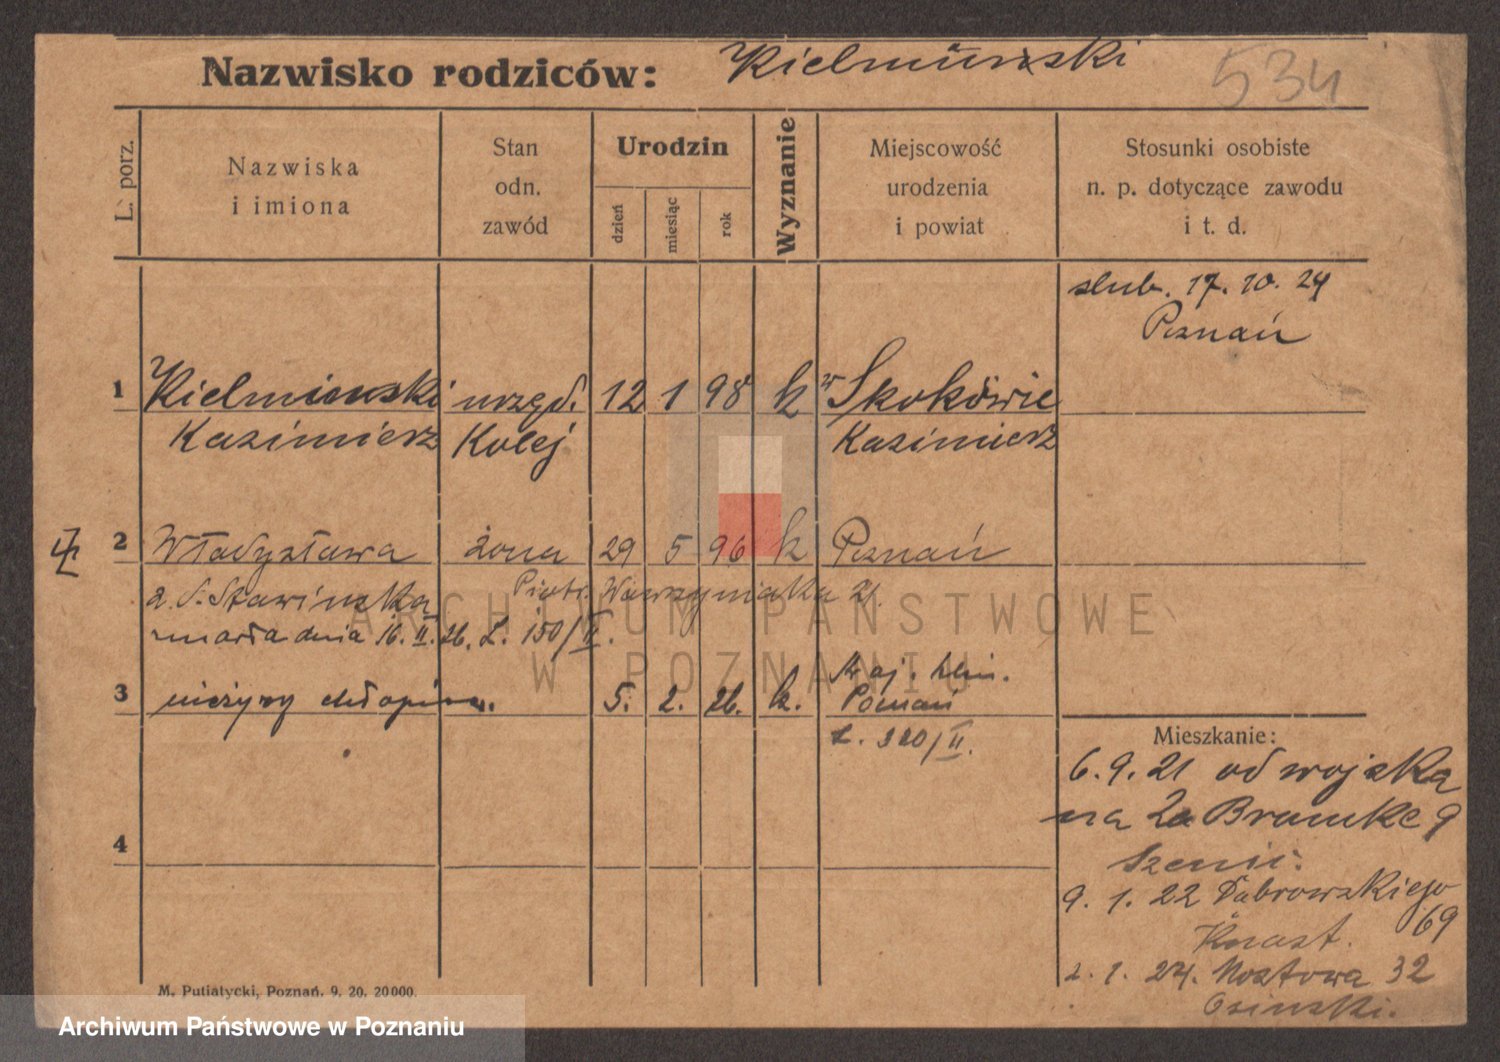 Nazwisko rodziców: Kielmiński
534
L. porz.
Nazwiska
i imiona
Stan
odn.
zawód
Urodzin
dzień
miesiąc
rok
Wyznanie
Miejscowość
urodzenia
i powiat
Stosunki osobiste
n. p. dotyczące zawodu
i t. d.
slub. 17. 10. 24
Poznań
1 Kielminski urzęd. 12 1 98 k w Skokówie
Kazimierz Kolej Kazimierz
2 Władysława żona 29 5 96 k Poznań
z d. Stawińska Piotr. Wawrzyniaka 21.
umarła dnia 16. II. 26. L. 150/II.
3 nieżywy chłopiec. 5. 2. 26. k. Kraj. klin.
Poznań
L. 320/II.
4
Mieszkanie:
6. 9. 21 od wojska
na Za Bramkę 9
9. 1. 22 Dąbrowskiego
69
Knast.
2. 1. 24. Mostowa 32
Osinski.
M. Putiatycki, Poznań. 9. 20. 20000.
ARCHIWUM PAŃSTWOWE
W POZNANIU
Archiwum Państwowe w Poznaniu